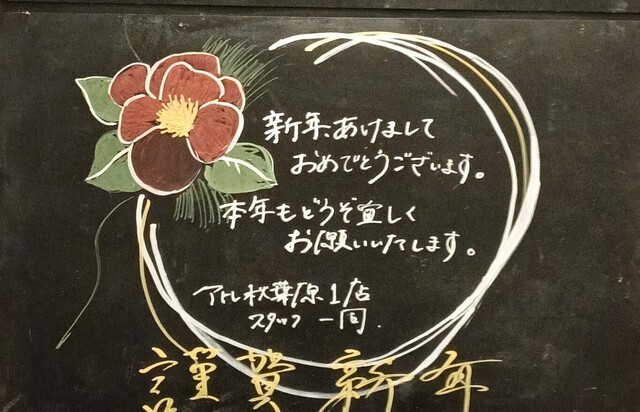 新年、あけまして
おめでとうございます。
本年もどうぞ宜しく
お願いいたします。
アトレ秋葉原1店
スタッフ一同.
謹賀新年